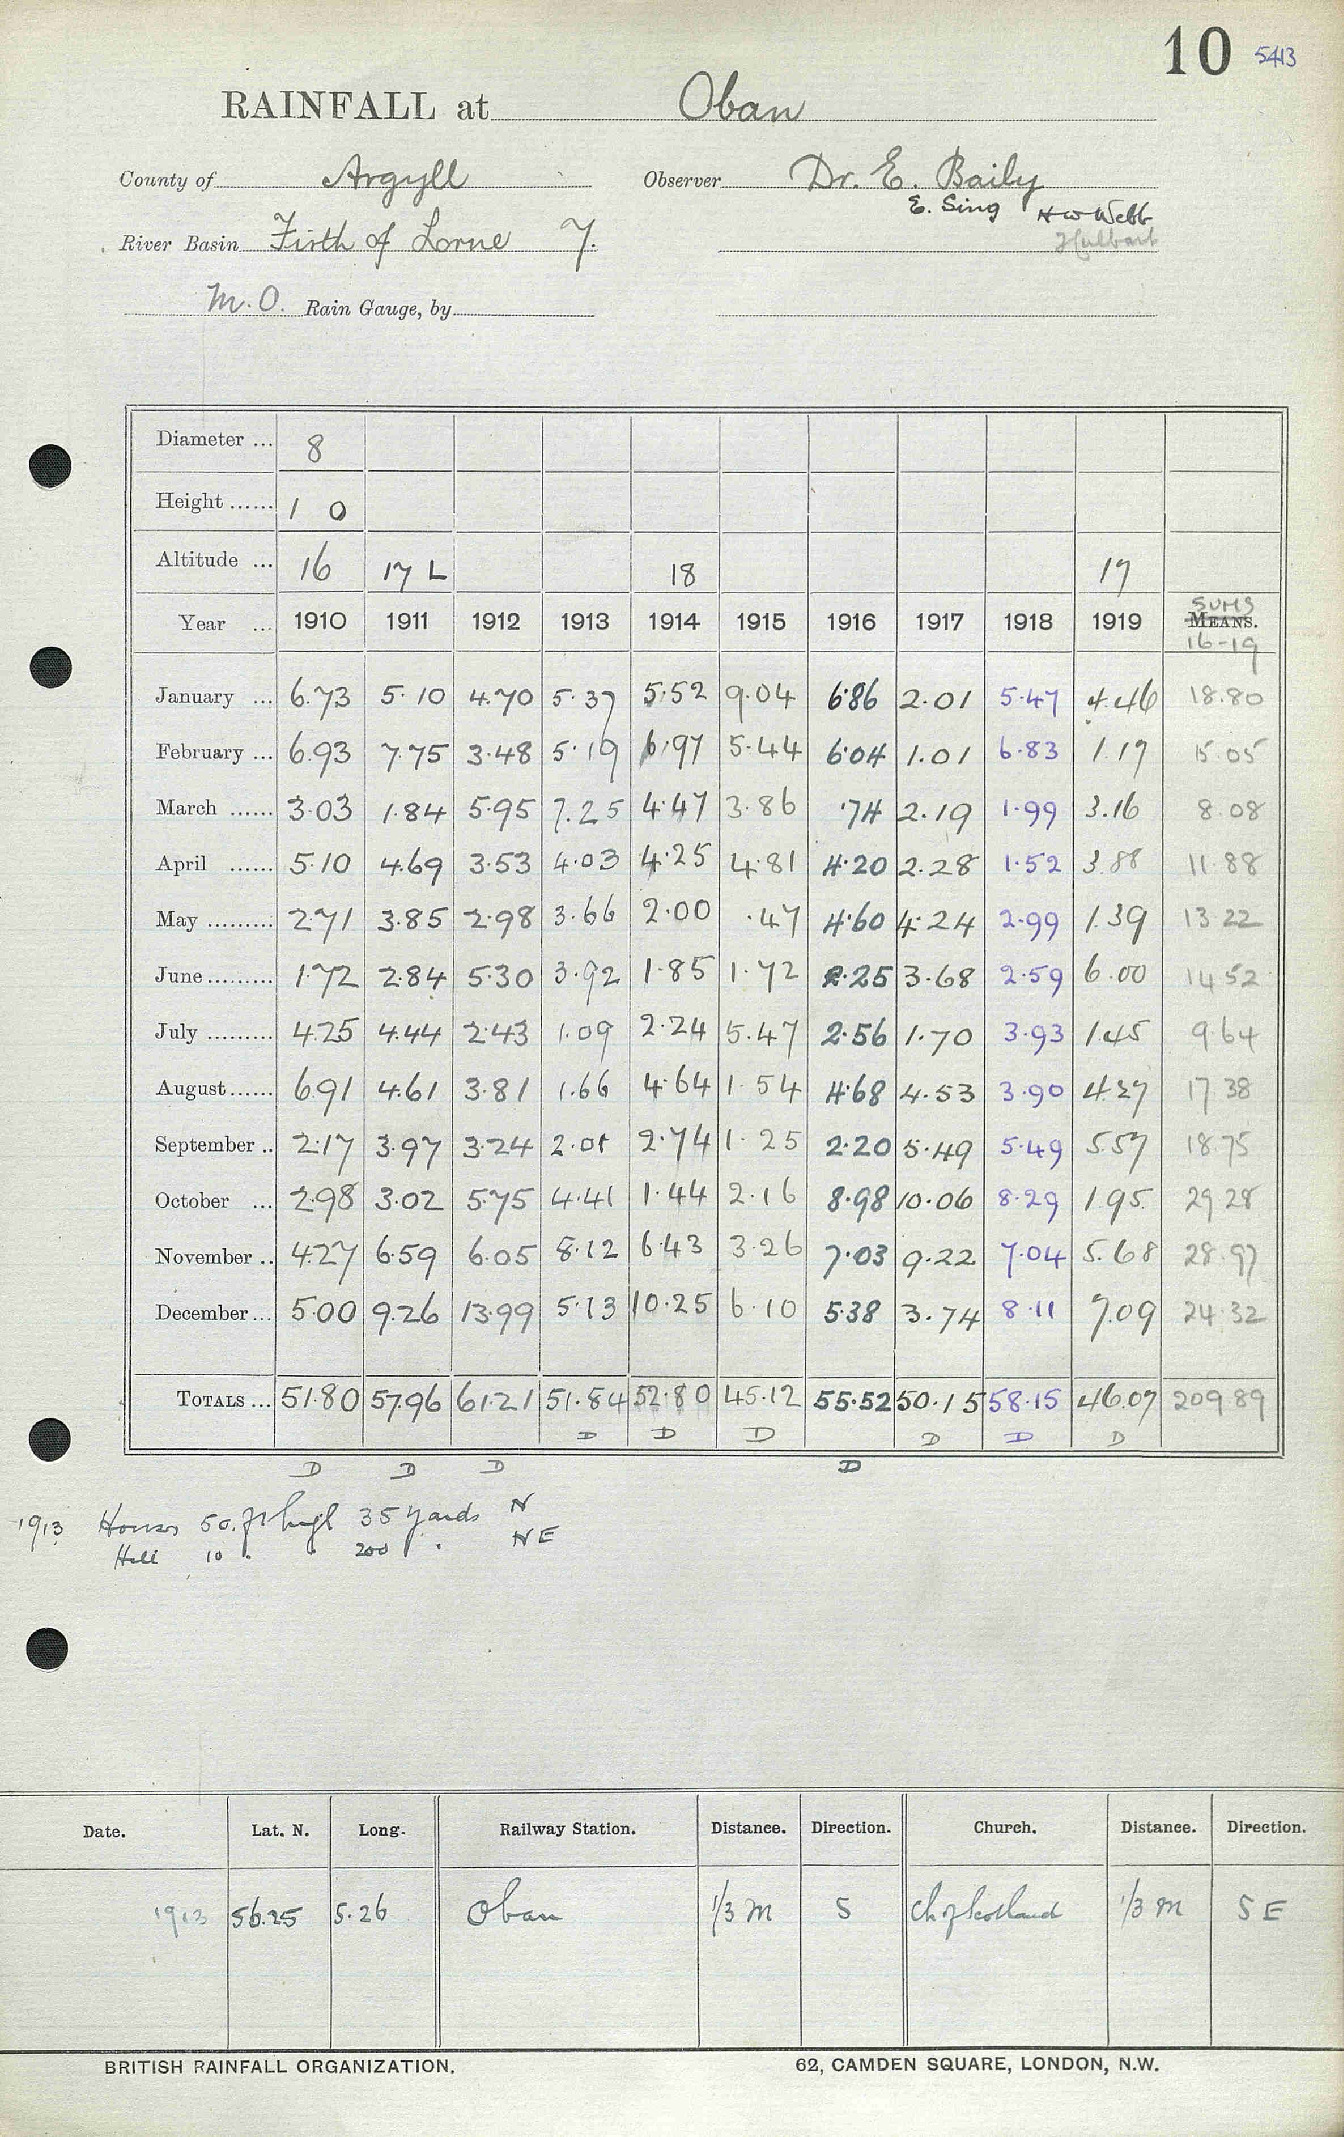 10 5413
RAINFALL at Oban
County of Argyll Observer Dr. E. Baily
E. Sing H W Webb
River Basin Firth of Lorne 7.
M.O. Rain Gauge, by
Diameter ... 8
Height ...... 1 0
Altitude ... 16 17 L 18 17
Year ... 1910 1911 1912 1913 1914 1915 1916 1917 1918 1919 SUMS MEANS. 16-19
January ... 6.73 5.10 4.70 5.37 5.52 9.04 6.86 2.01 5.47 4.46 18.80
February ... 6.93 7.75 3.48 5.19 6.97 5.44 6.04 1.01 6.83 1.17 15.05
March ...... 3.03 1.84 5.95 7.25 4.47 3.86 .74 2.19 1.99 3.16 8.08
April ...... 5.10 4.69 3.53 4.03 4.25 4.81 4.20 2.28 1.52 3.88 11.88
May ......... 2.71 3.85 2.98 3.66 2.00 .47 4.60 4.24 2.99 1.39 13 22
June ......... 1.72 2.84 5.30 3.92 1.85 1.72 2.25 3.68 2.59 6.00 14 52
July ......... 4.25 4.44 2.43 1.09 2.24 5.47 2.56 1.70 3.93 1.45 9.64
August ...... 6.91 4.61 3.81 1.66 4.64 1.54 4.68 4.53 3.90 4.27 17 38
September .. 2.17 3.97 3.24 2.01 2.74 1.25 2.20 5.49 5.49 5.57 18.75
October ... 2.98 3.02 5.75 4.41 1.44 2.16 8.98 10.06 8.29 1.95 29 28
November .. 4.27 6.59 6.05 8.12 6.43 3.26 7.03 9.22 7.04 5.68 28.97
December ... 5.00 9.26 13.99 5.13 10.25 6.10 5.38 3.74 8.11 7.09 24 32
TOTALS ... 51.80 57.96 61.21 51.84 52.80 45.12 55.52 50.15 58.15 46.07 209 89
D D D D D D
D D D D
1913 Houses 50. ft high 35 yards N
Hill 10 " " 200 " NE
Date. Lat. N. Long. Railway Station. Distance. Direction. Church. Distance. Direction.
1913 56.25 5.26 Oban 1/3 m S Ch of Scotland 1/3 m S E
BRITISH RAINFALL ORGANIZATION. 62, CAMDEN SQUARE, LONDON, N.W.